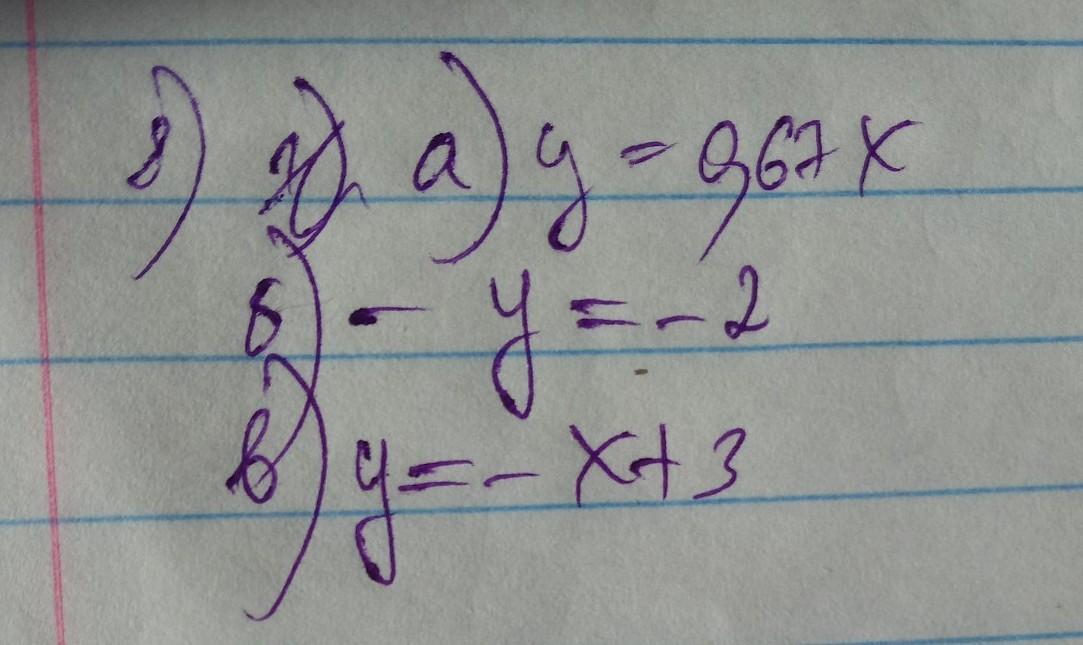 8) а) y = 0,67x
б) - y = - 2
в) y = - x + 3